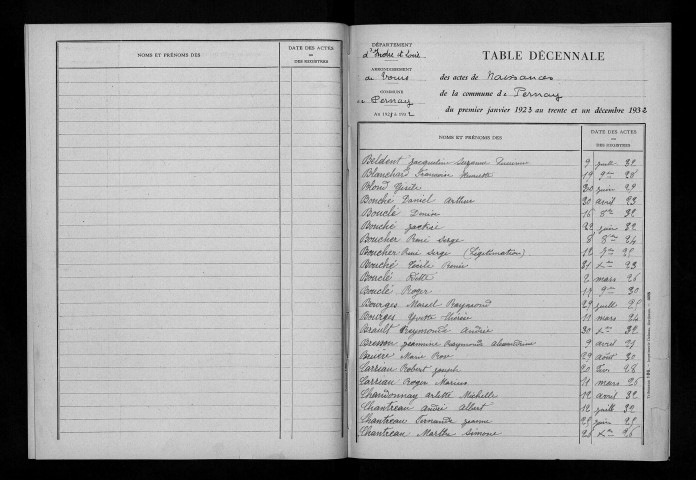 NOMS ET PRÉNOMS DES
DATE DES ACTES
ou
DES REGISTRES
DÉPARTEMENT
d'Indre et Loire
ARRONDISSEMENT
de Tours
COMMUNE
de Pernay
AN 1923 à 1932
TABLE DÉCENNALE
des actes de Naissances
de la commune de Pernay
du premier janvier 1923 au trente et un décembre 1932
NOMS ET PRÉNOMS DES
DATE DES ACTES
ou
DES REGISTRES
Beldent Jacqueline Suzanne 9 juil 32
Blanchard Françoise Henriette 19 9bre 28
Blond 30 juin 29
Bouché Daniel Arthur 20 avril 23
Bouclé Denise 16 8bre 32
Bouché Jackie 22 juin 32
Boucher René Serge 8 8bre 24
Boucher René Serge (Légitimation) 12 7bre 25
Bouché Cécile Renée 31 Xbre 23
Bouclé 2 mars 26
Bouclé Roger 17 9bre 30
Bourges Marcel Raymond 29 juill 25
Bourges Yvette Thérèse 11 mars 24
Brault Raymonde Andrée 30 Xbre 32
Bresson Jeannine Raymonde Alexandrine 9 avril 27
Bruère Marie Rose 29 août 30
Carriau Robert Joseph 20 fév 28
Carriau Roger Marius 21 mars 26
Chardonnay Arlette Michelle 12 avril 32
Chantreau André Albert 12 juill 32
Chantreau Fernande Jeanne 27 juin 27
Chantreau Marthe Simone 26 Xbre 25